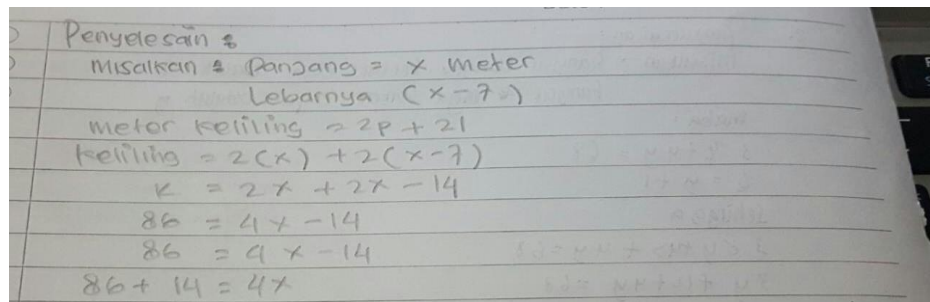 Penyelesain :
Misalkan : Panjang = x meter
Lebarnya (x-7)
meter keliling = 2p + 2l
keliling = 2(x) + 2(x-7)
K = 2x + 2x - 14
86 = 4x - 14
86 = 4x - 14
86 + 14 = 4x